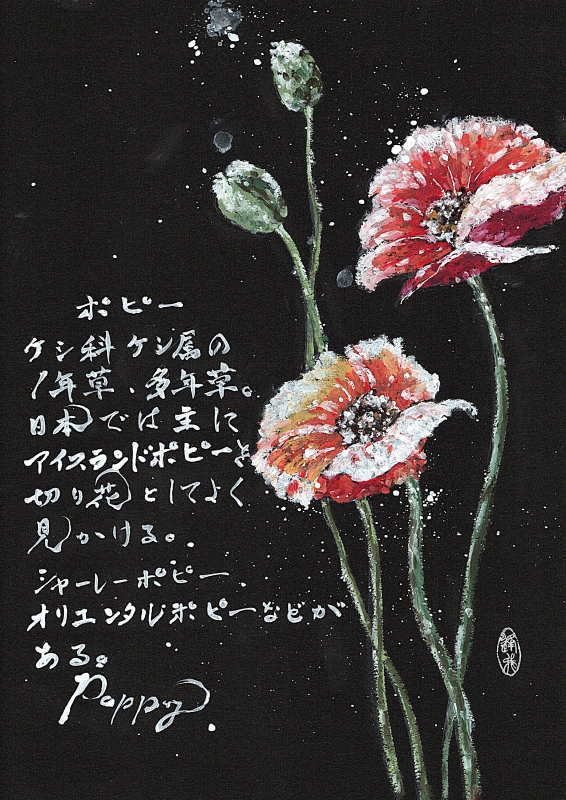 ポピー
ケシ科ケシ属の
1年草、多年草。
日本では主に
アイスランドポピーを
切り花としてよく
見かける。
シャーレーポピー、
オリエンタルポピーなどが
ある。
Poppy